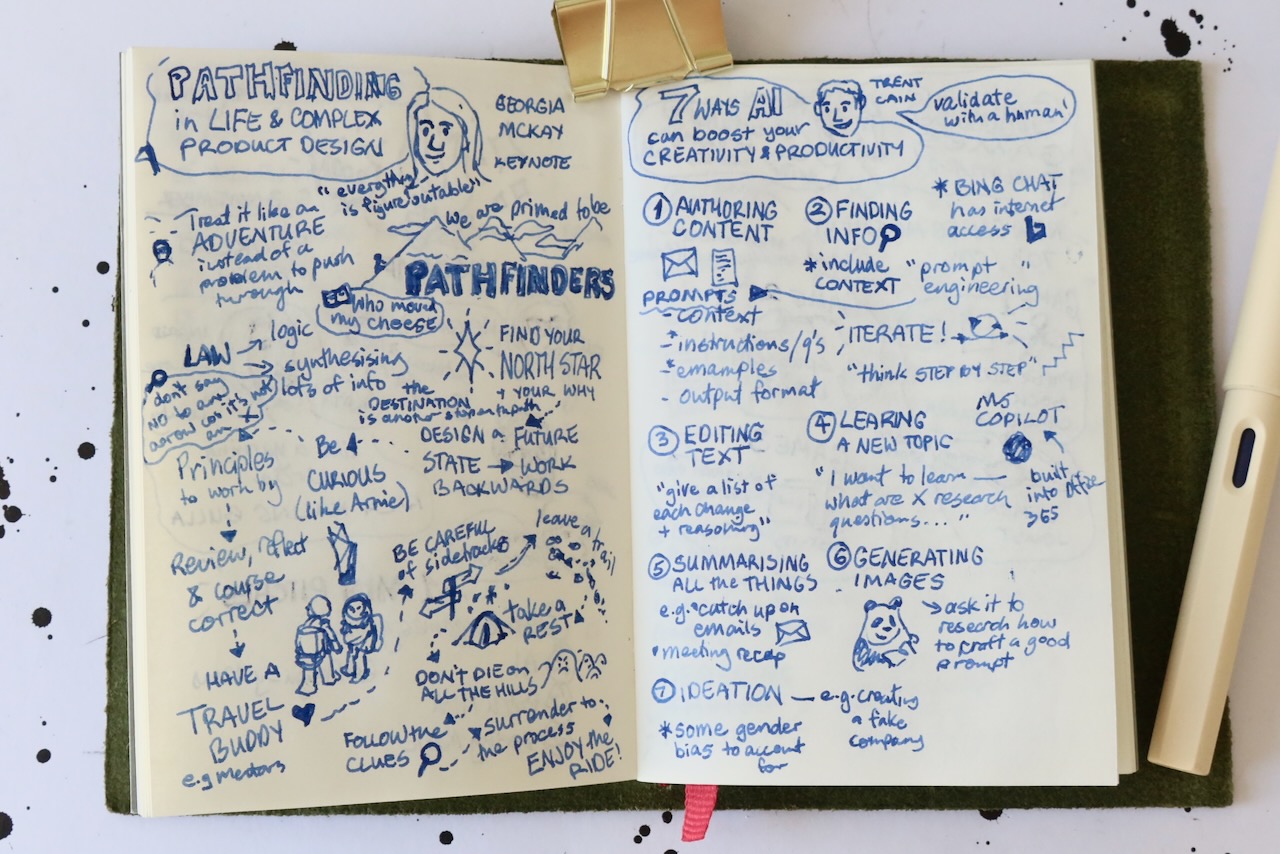 PATHFINDING
in LIFE & COMPLEX
PRODUCT DESIGN
GEORGIA
MCKAY
KEYNOTE
"everything
is figureoutable"
Treat it like an
ADVENTURE
instead of a
problem to push
through
we are primed to be
PATHFINDERS
who moved
my cheese
LAW
logic
synthesising
lots of info
don't say
NO to an
arrow
FIND YOUR
NORTH STAR
+ YOUR WHY
the
DESTINATION
is another stop on the path
DESIGN a FUTURE
STATE → WORK
BACKWARDS
Principles
to work by
Be
CURIOUS
(like Arnie)
Review, reflect
& course
correct
HAVE A
TRAVEL
BUDDY
e.g mentors
BE CAREFUL
of sidetracks
leave a trail
take a
REST
DON'T DIE on
ALL THE HILLS
FOLLOW the
CLUES
surrender to
the process
ENJOY the
RIDE!
7 WAYS AI
can boost your
CREATIVITY & PRODUCTIVITY
TRENT
CAIN
validate
with a human
① AUTHORING
CONTENT
PROMPTS
- context
- instructions/q's
- emamples
- output format
② FINDING
INFO
* include
CONTEXT
"prompt
engineering"
* BING CHAT
has internet
access
ITERATE!
"think STEP BY STEP"
③ EDITING
TEXT
"give a list of
each change
+ reasoning"
④ LEARING
A NEW TOPIC
"I want to learn —
what are X research
questions..."
MS
COPILOT
built
into Office
365
⑤ SUMMARISING
ALL the THINGS
e.g. catch up on
emails
meeting recap
⑥ GENERATING
IMAGES
→ ask it to
research how
to craft a good
prompt
⑦ IDEATION — e.g. creating
a fake
company
* some gender
bias to account
for